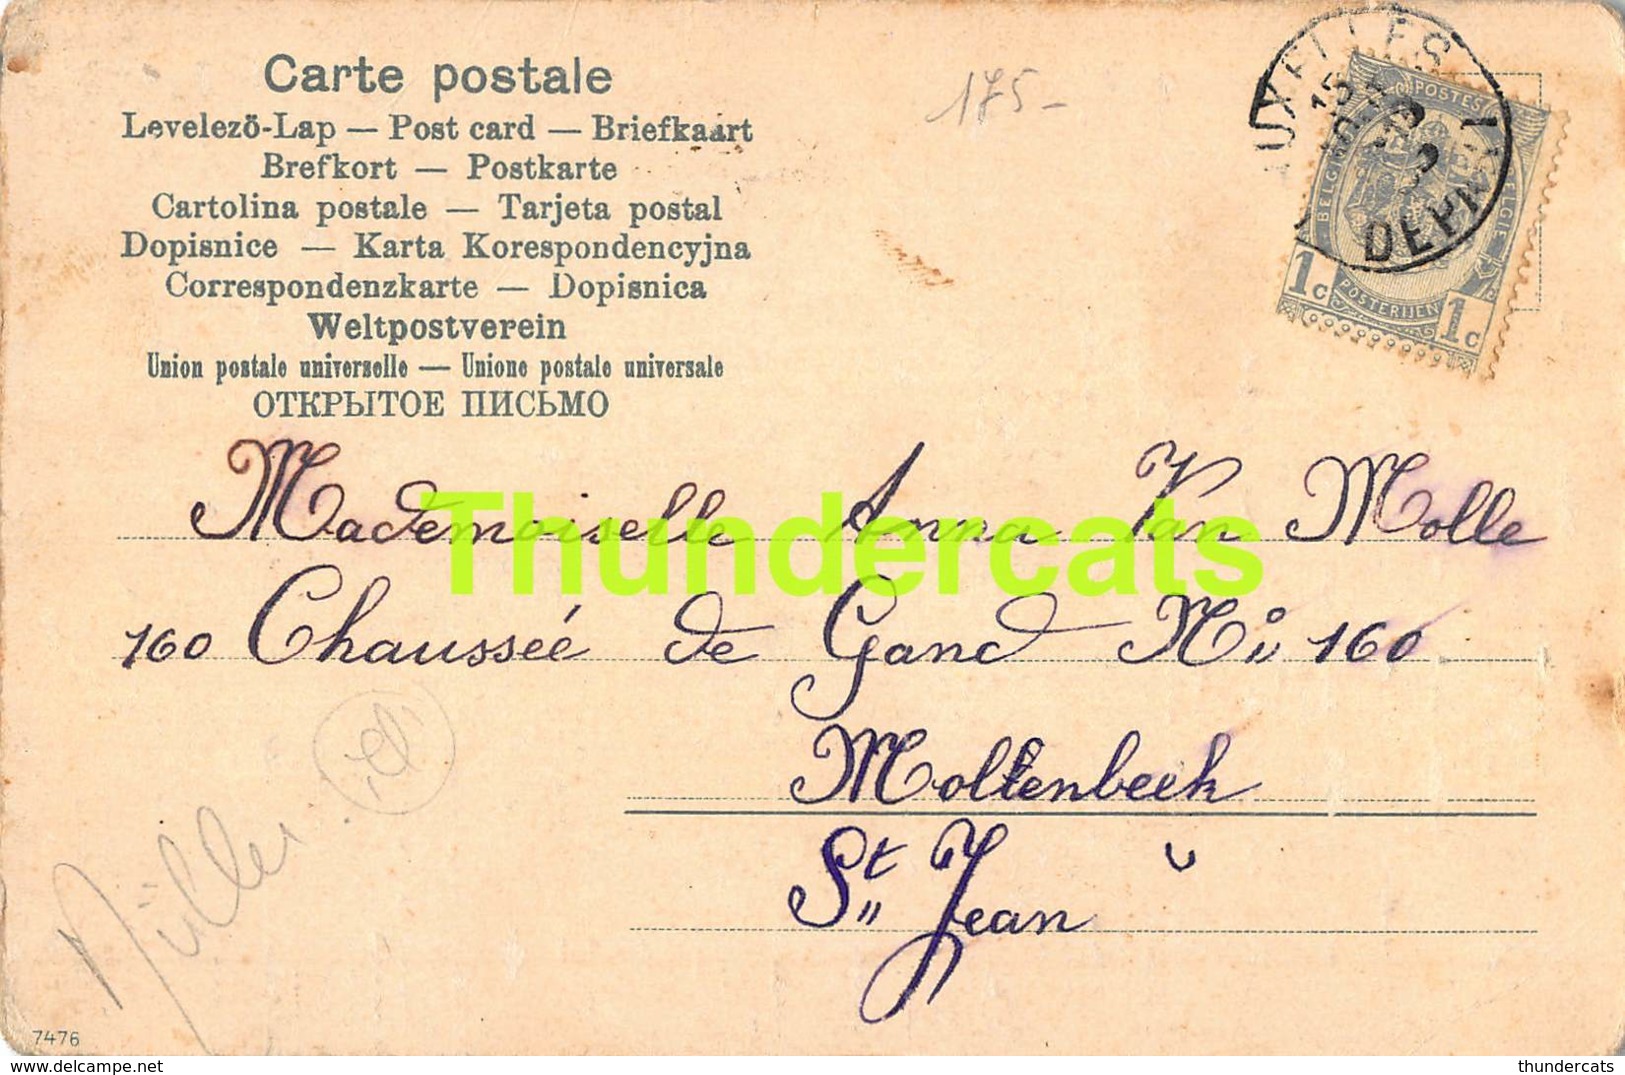 Carte postale
Levelező-Lap — Post card — Briefkaart
Brefkort — Postkarte
Cartolina postale — Tarjeta postal
Dopisnice — Karta Korespondencyjna
Correspondenzkarte — Dopisnica
Weltpostverein
Union postale universelle — Unione postale universale
ОТКРЫТОЕ ПИСЬМО
175-
UXELLES
DEPART
POSTES
BELGIQUE
BELGIE
POSTERIJEN
1c 1c
Mademoiselle Anna Van Molle
160 Chaussée de Gand No 160
Moltenbeek
St Jean
Thundercats
7476
thundercats - Delcampe.net